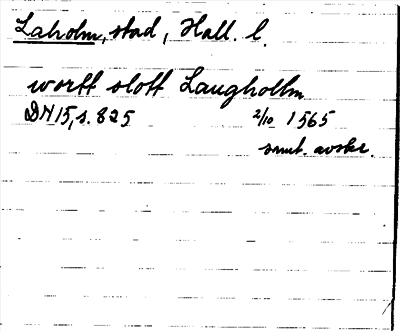 Laholm, stad, Hall. l.
wortt slott Laugholm
DN 15, s. 825 2/10 1565
samt. avskr.